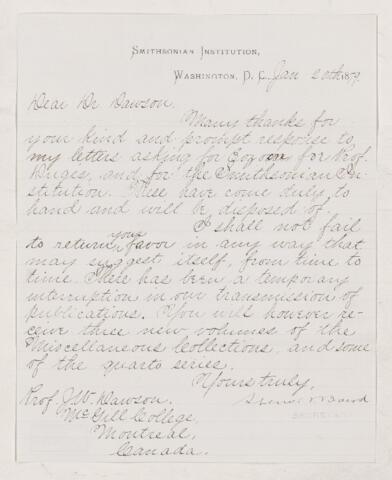 SMITHSONIAN INSTITUTION,
WASHINGTON, D. C. Jan 20th 1879.
Dear Dr Dawson.
Many thanks for
your kind and prompt response to
my letters asking for Eozoon for Prof.
Duges, and for the Smithsonian In-
stitution. These have come duly to
hand and will be disposed of.
I shall not fail
to return your favor in any way that
may suggest itself, from time to
time. There has been a temporary
interruption in our transmission of
publications. You will however re-
ceive three new volumes of the
Miscellaneous Collections, and some
of the quarto series.
Yours truly,
Spencer F Baird
SECRETARY
Prof. J. W. Dawson.
McGill College,
Montreal,
Canada.